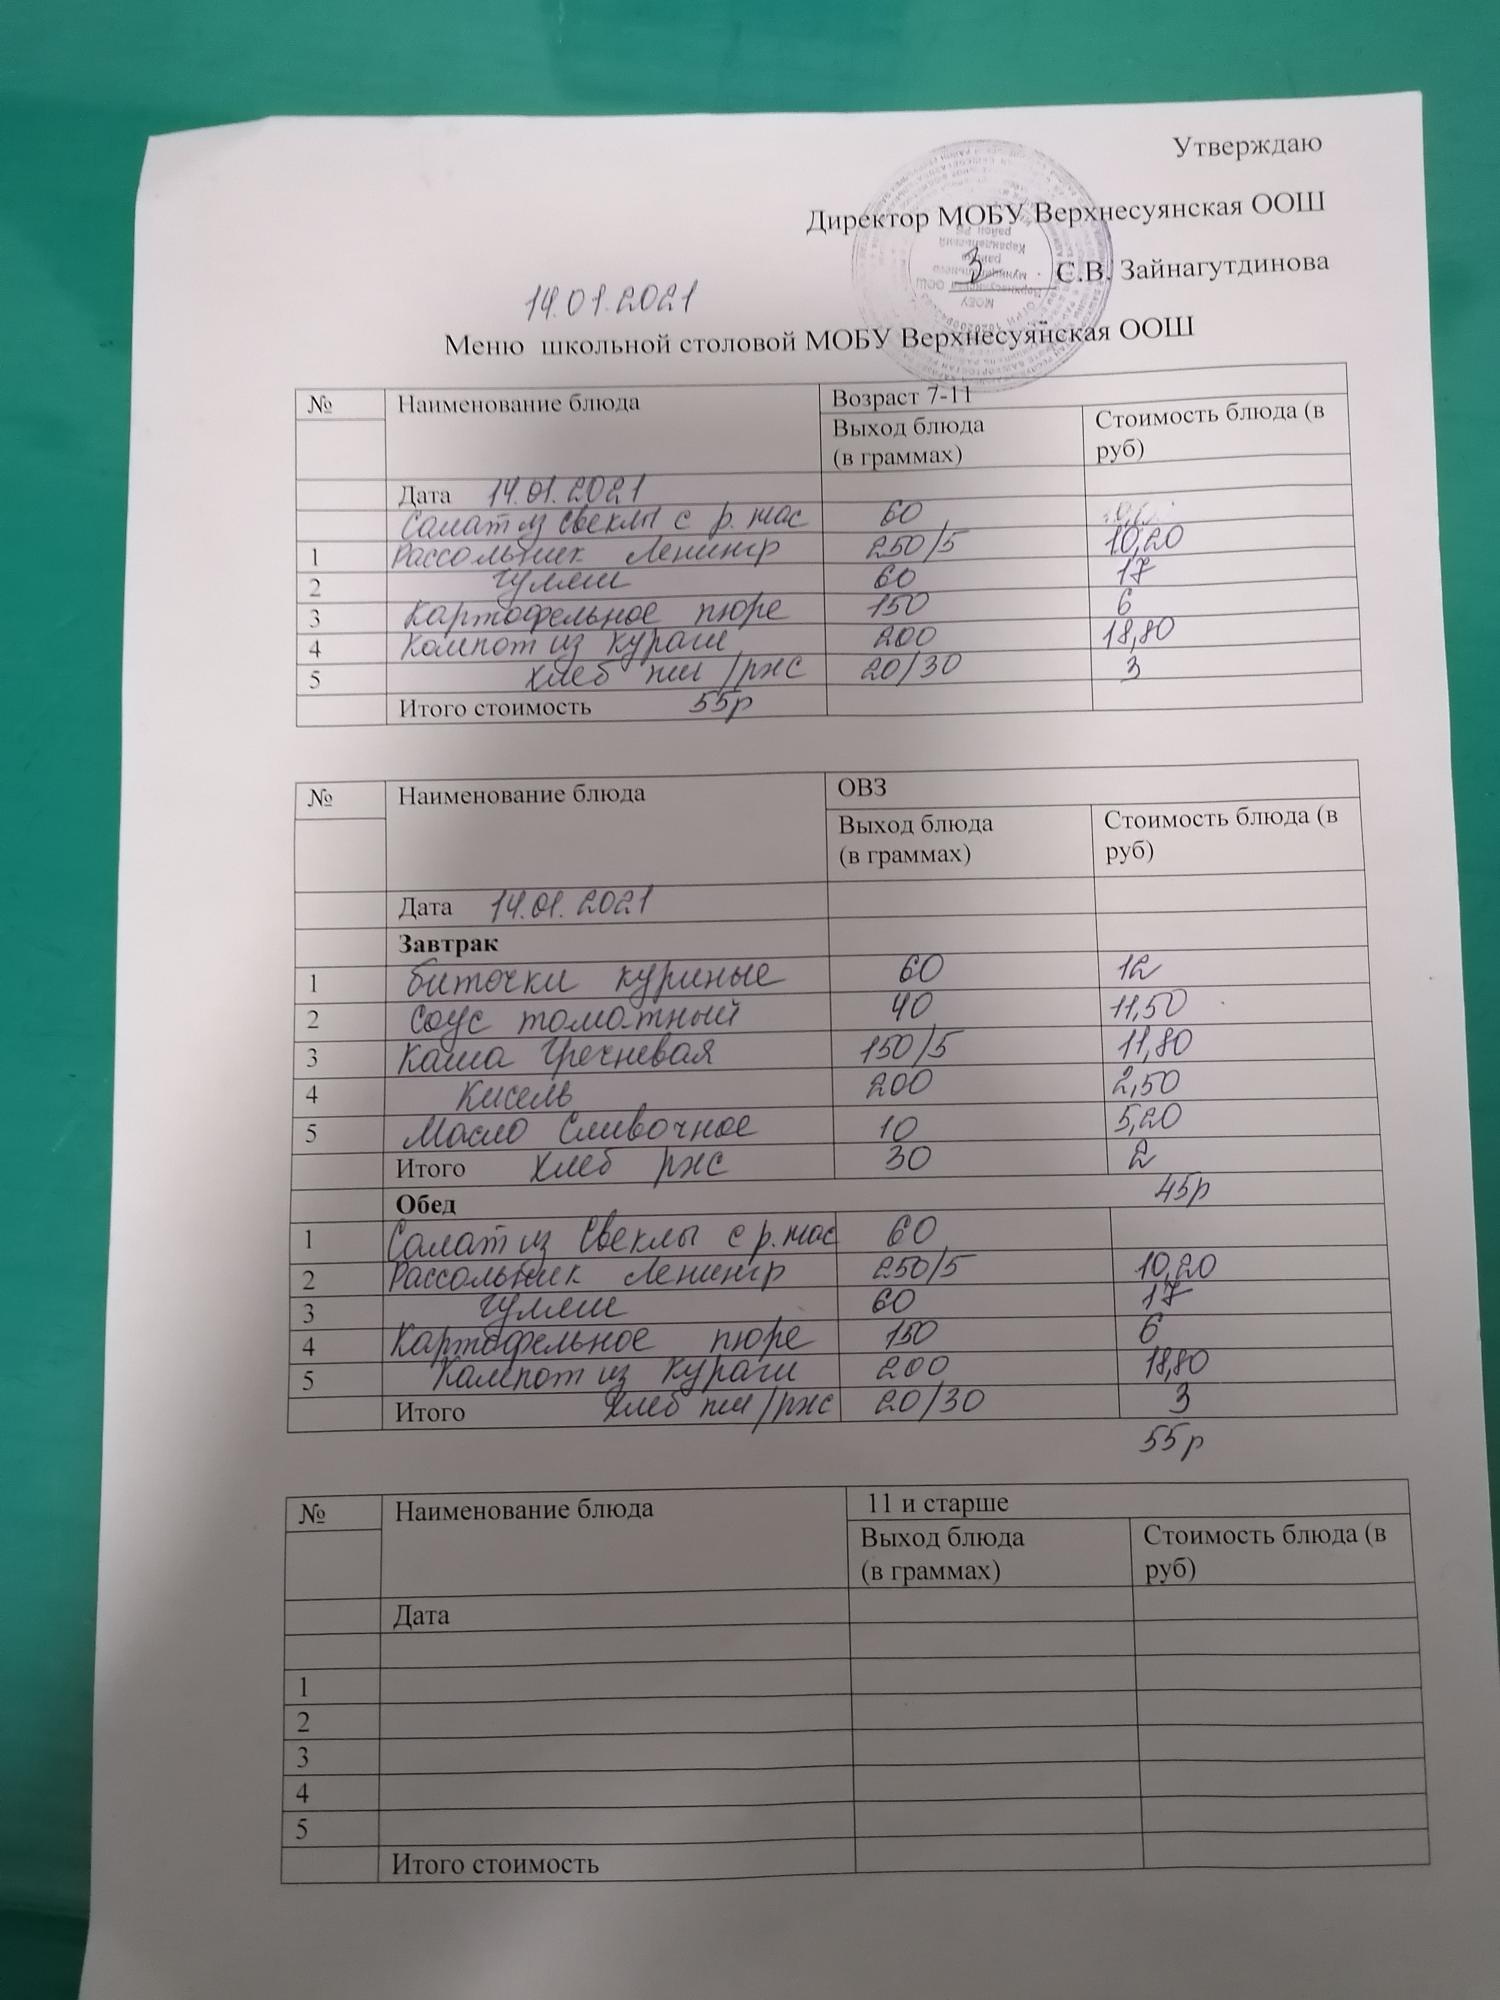 Утверждаю
Директор МОБУ Верхнесуянская ООШ
С.В. Зайнагутдинова
14.01.2021
Меню школьной столовой МОБУ Верхнесуянская ООШ
№ Наименование блюда Возраст 7-11
Выход блюда (в граммах) Стоимость блюда (в руб)
Дата 14.01.2021
Салат из свеклы с р. мас 60
1 Рассольник Ленингр 250/5 10,20
2 гуляш 60 17
3 Картофельное пюре 150 6
4 Компот из кураги 200 18,80
5 хлеб пш/ржс 20/30 3
Итого стоимость 55р
№ Наименование блюда ОВЗ
Выход блюда (в граммах) Стоимость блюда (в руб)
Дата 14.01.2021
Завтрак
1 биточки куриные 60 12
2 Соус томатный 40 11,50
3 Каша Гречневая 150/5 11,80
4 Кисель 200 2,50
5 Масло Сливочное 10 5,20
Итого хлеб ржс 30 2
Обед 45р
1 Салат из Свеклы с р. мас 60
2 Рассольник Ленингр 250/5 10,20
3 гуляш 60 17
4 Картофельное пюре 150 6
5 Компот из кураги 200 18,80
Итого хлеб пш/ржс 20/30 3
55р
№ Наименование блюда 11 и старше
Выход блюда (в граммах) Стоимость блюда (в руб)
Дата
1
2
3
4
5
Итого стоимость